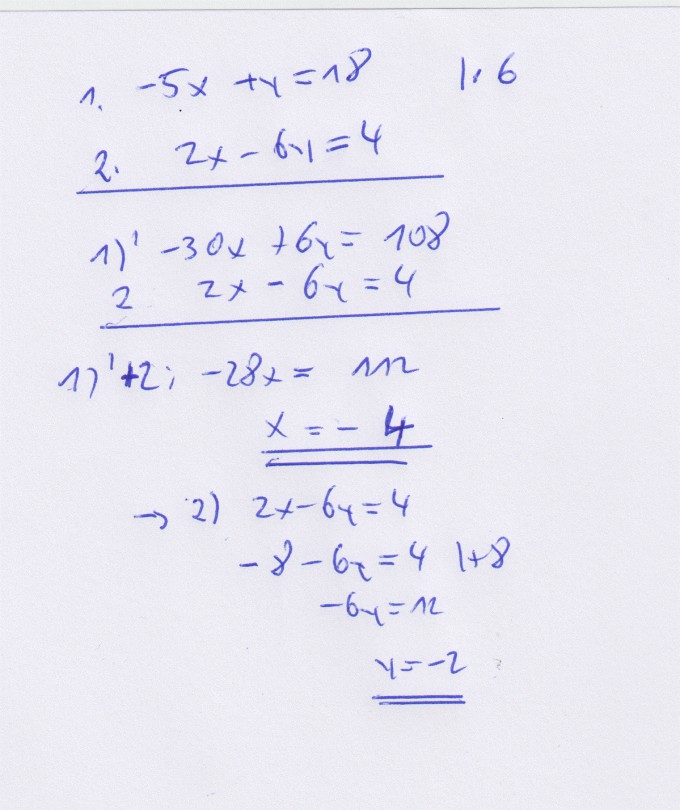 1. -5x +y = 18 |· 6
2. 2x - 6y = 4
1)' -30x + 6y = 108
2 2x - 6y = 4
1)'+2; -28x = 112
x = - 4
→ 2) 2x - 6y = 4
-8 - 6y = 4 |+8
-6y = 12
y = -2